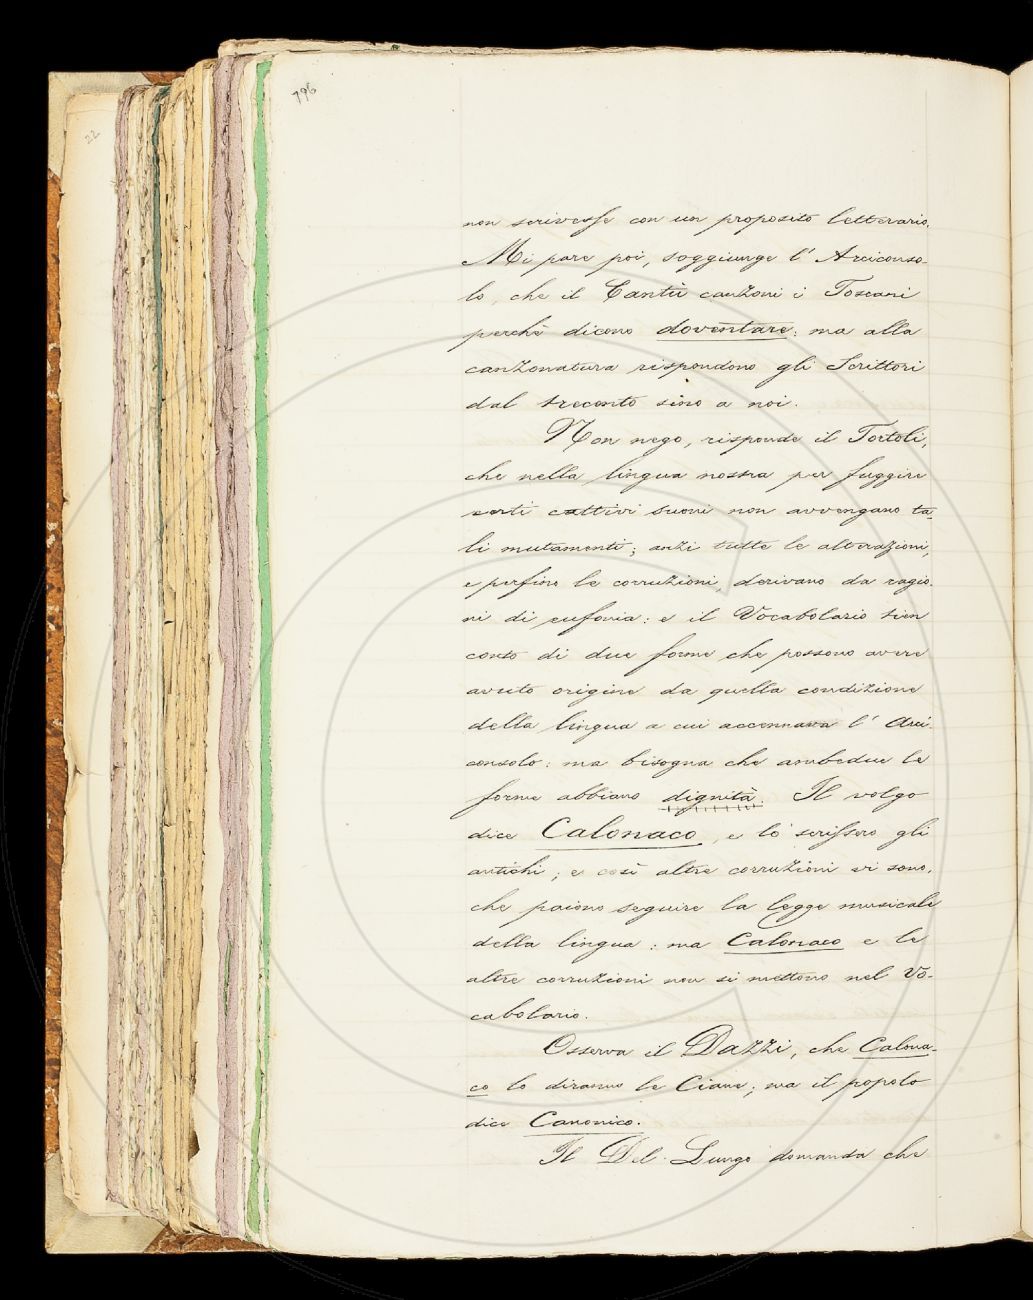 796
22
non scrivesse con un proposito letterario.
Mi pare poi, soggiunge l' Arciconso-
lo, che il Cantù canzoni i Toscani
perchè dicono doventare: ma alla
canzonatura rispondono gli Scrittori
dal trecento sino a noi.
Non nego, risponde il Tortoli,
che nella lingua nostra per fuggire
certi cattivi suoni non avvengano ta-
li mutamenti; anzi tutte le alterazioni,
e perfino le corruzioni, derivano da ragio-
ni di eufonia: e il Vocabolario tien
conto di due forme che possono avere
avuto origine da quella condizione
della lingua a cui accennava l' Arci-
consolo: ma bisogna che ambedue le
forme abbiano dignità. Il volgo
dice Calonaco, e lo scrissero gli
antichi; e così altre corruzioni vi sono,
che paiono seguire la legge musicale
della lingua: ma Calonaco e le
altre corruzioni non si mettono nel Vo-
cabolario.
Osserva il Dazzi, che Calona-
co lo diranno le Ciane; ma il popolo
dice Canonico.
Il Del-Lungo domanda che